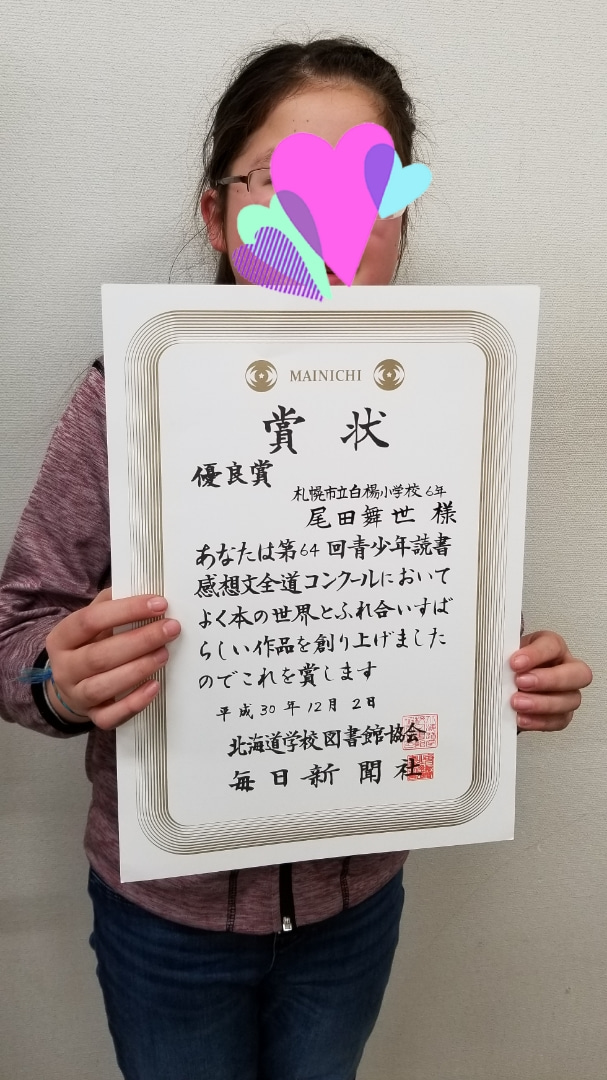 MAINICHI
賞状
優良賞
札幌市立白楊小学校6年
尾田舞世 様
あなたは第64回青少年読書
感想文全道コンクールにおいて
よく本の世界とふれ合いすば
らしい作品を創り上げました
のでこれを賞します
平成30年12月2日
北海道学校図書館協会
毎日新聞社